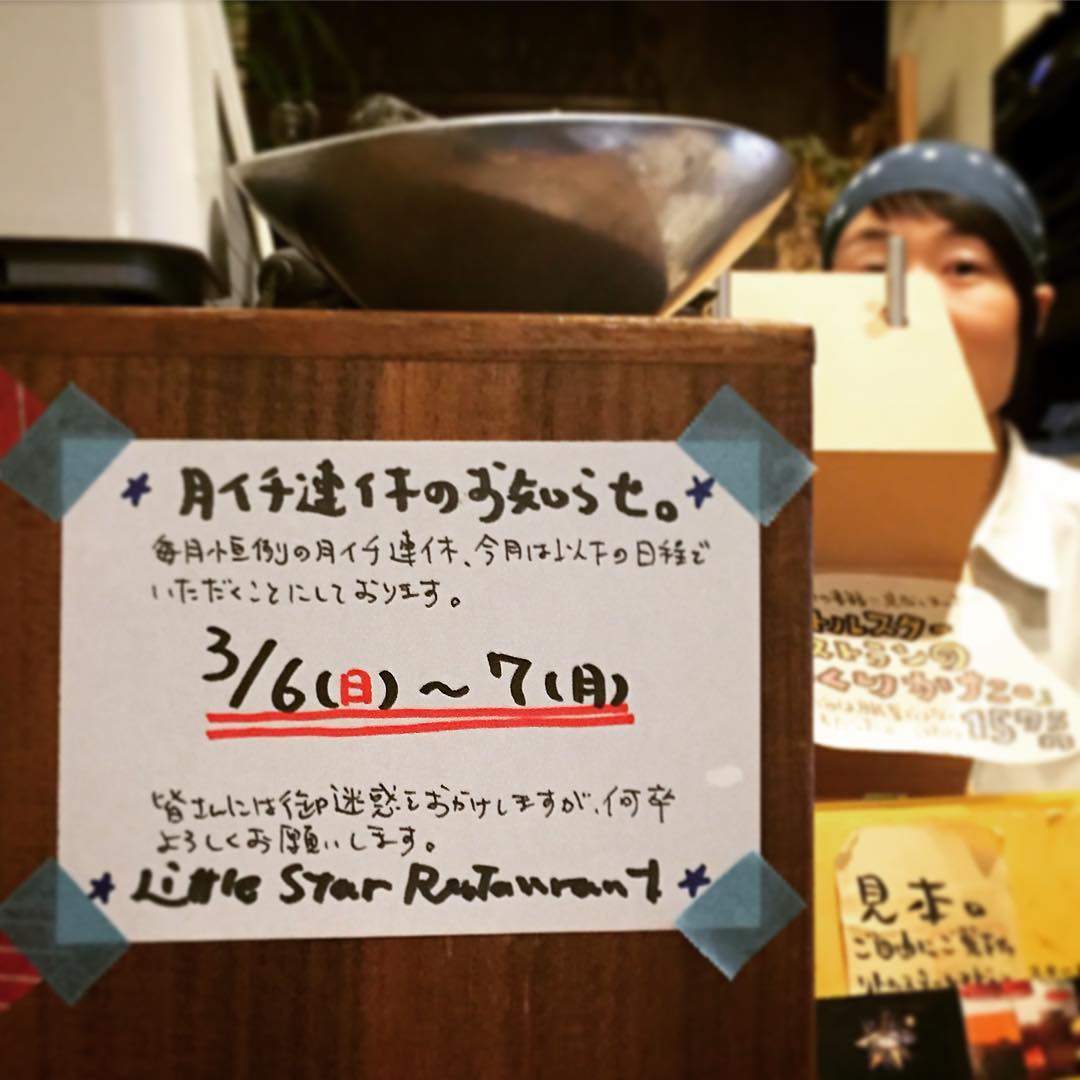 ★月イチ連休のお知らせ。★
毎月恒例の月イチ連休、今月は以下の日程で
いただくことにしております。
3/6(日)～7(月)
皆さんには御迷惑をおかけしますが、何卒
よろしくお願いします。
★Little Star Restaurant★
トルスター
ストランの
くりかけた。」
157
見本。
ご自由にご覧下